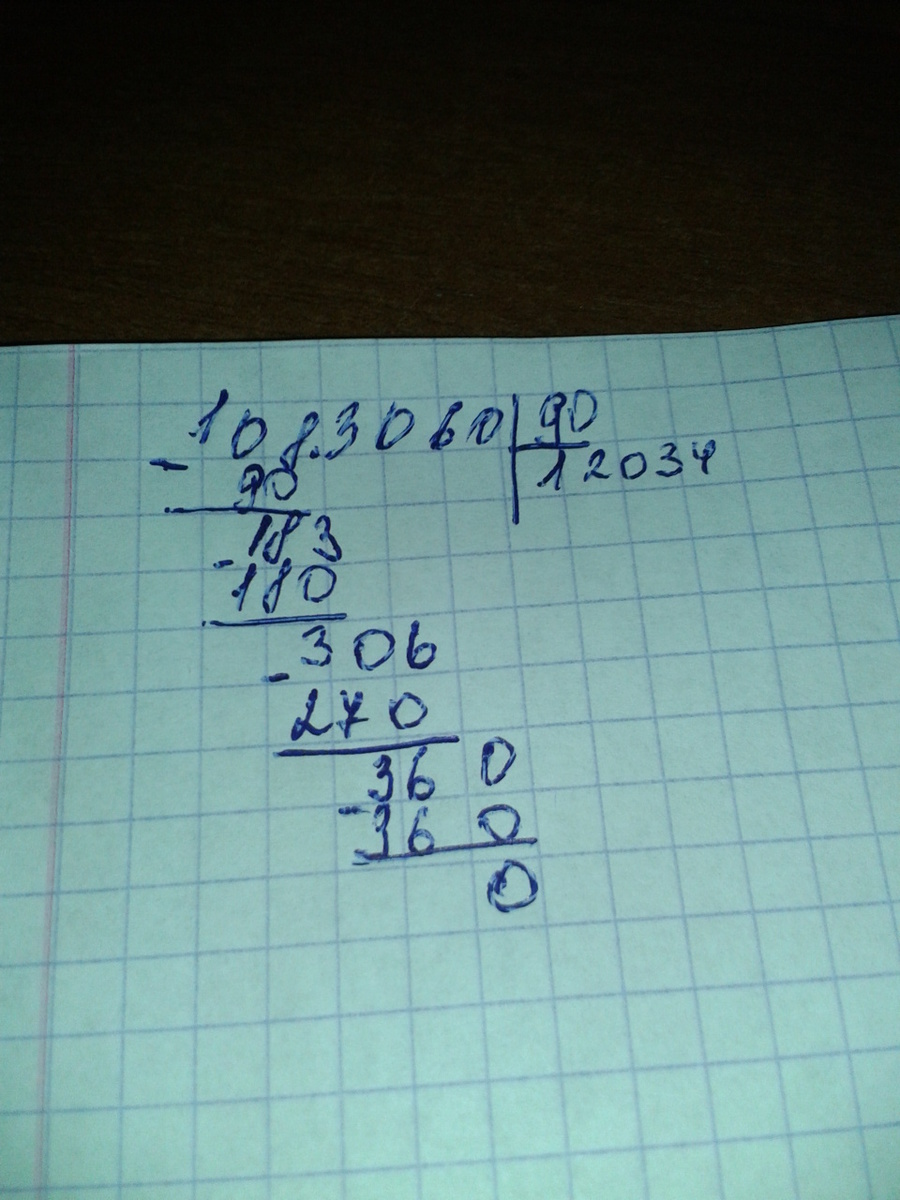 1083060 90
- 90 12034
183
- 180
306
- 270
360
- 360
0